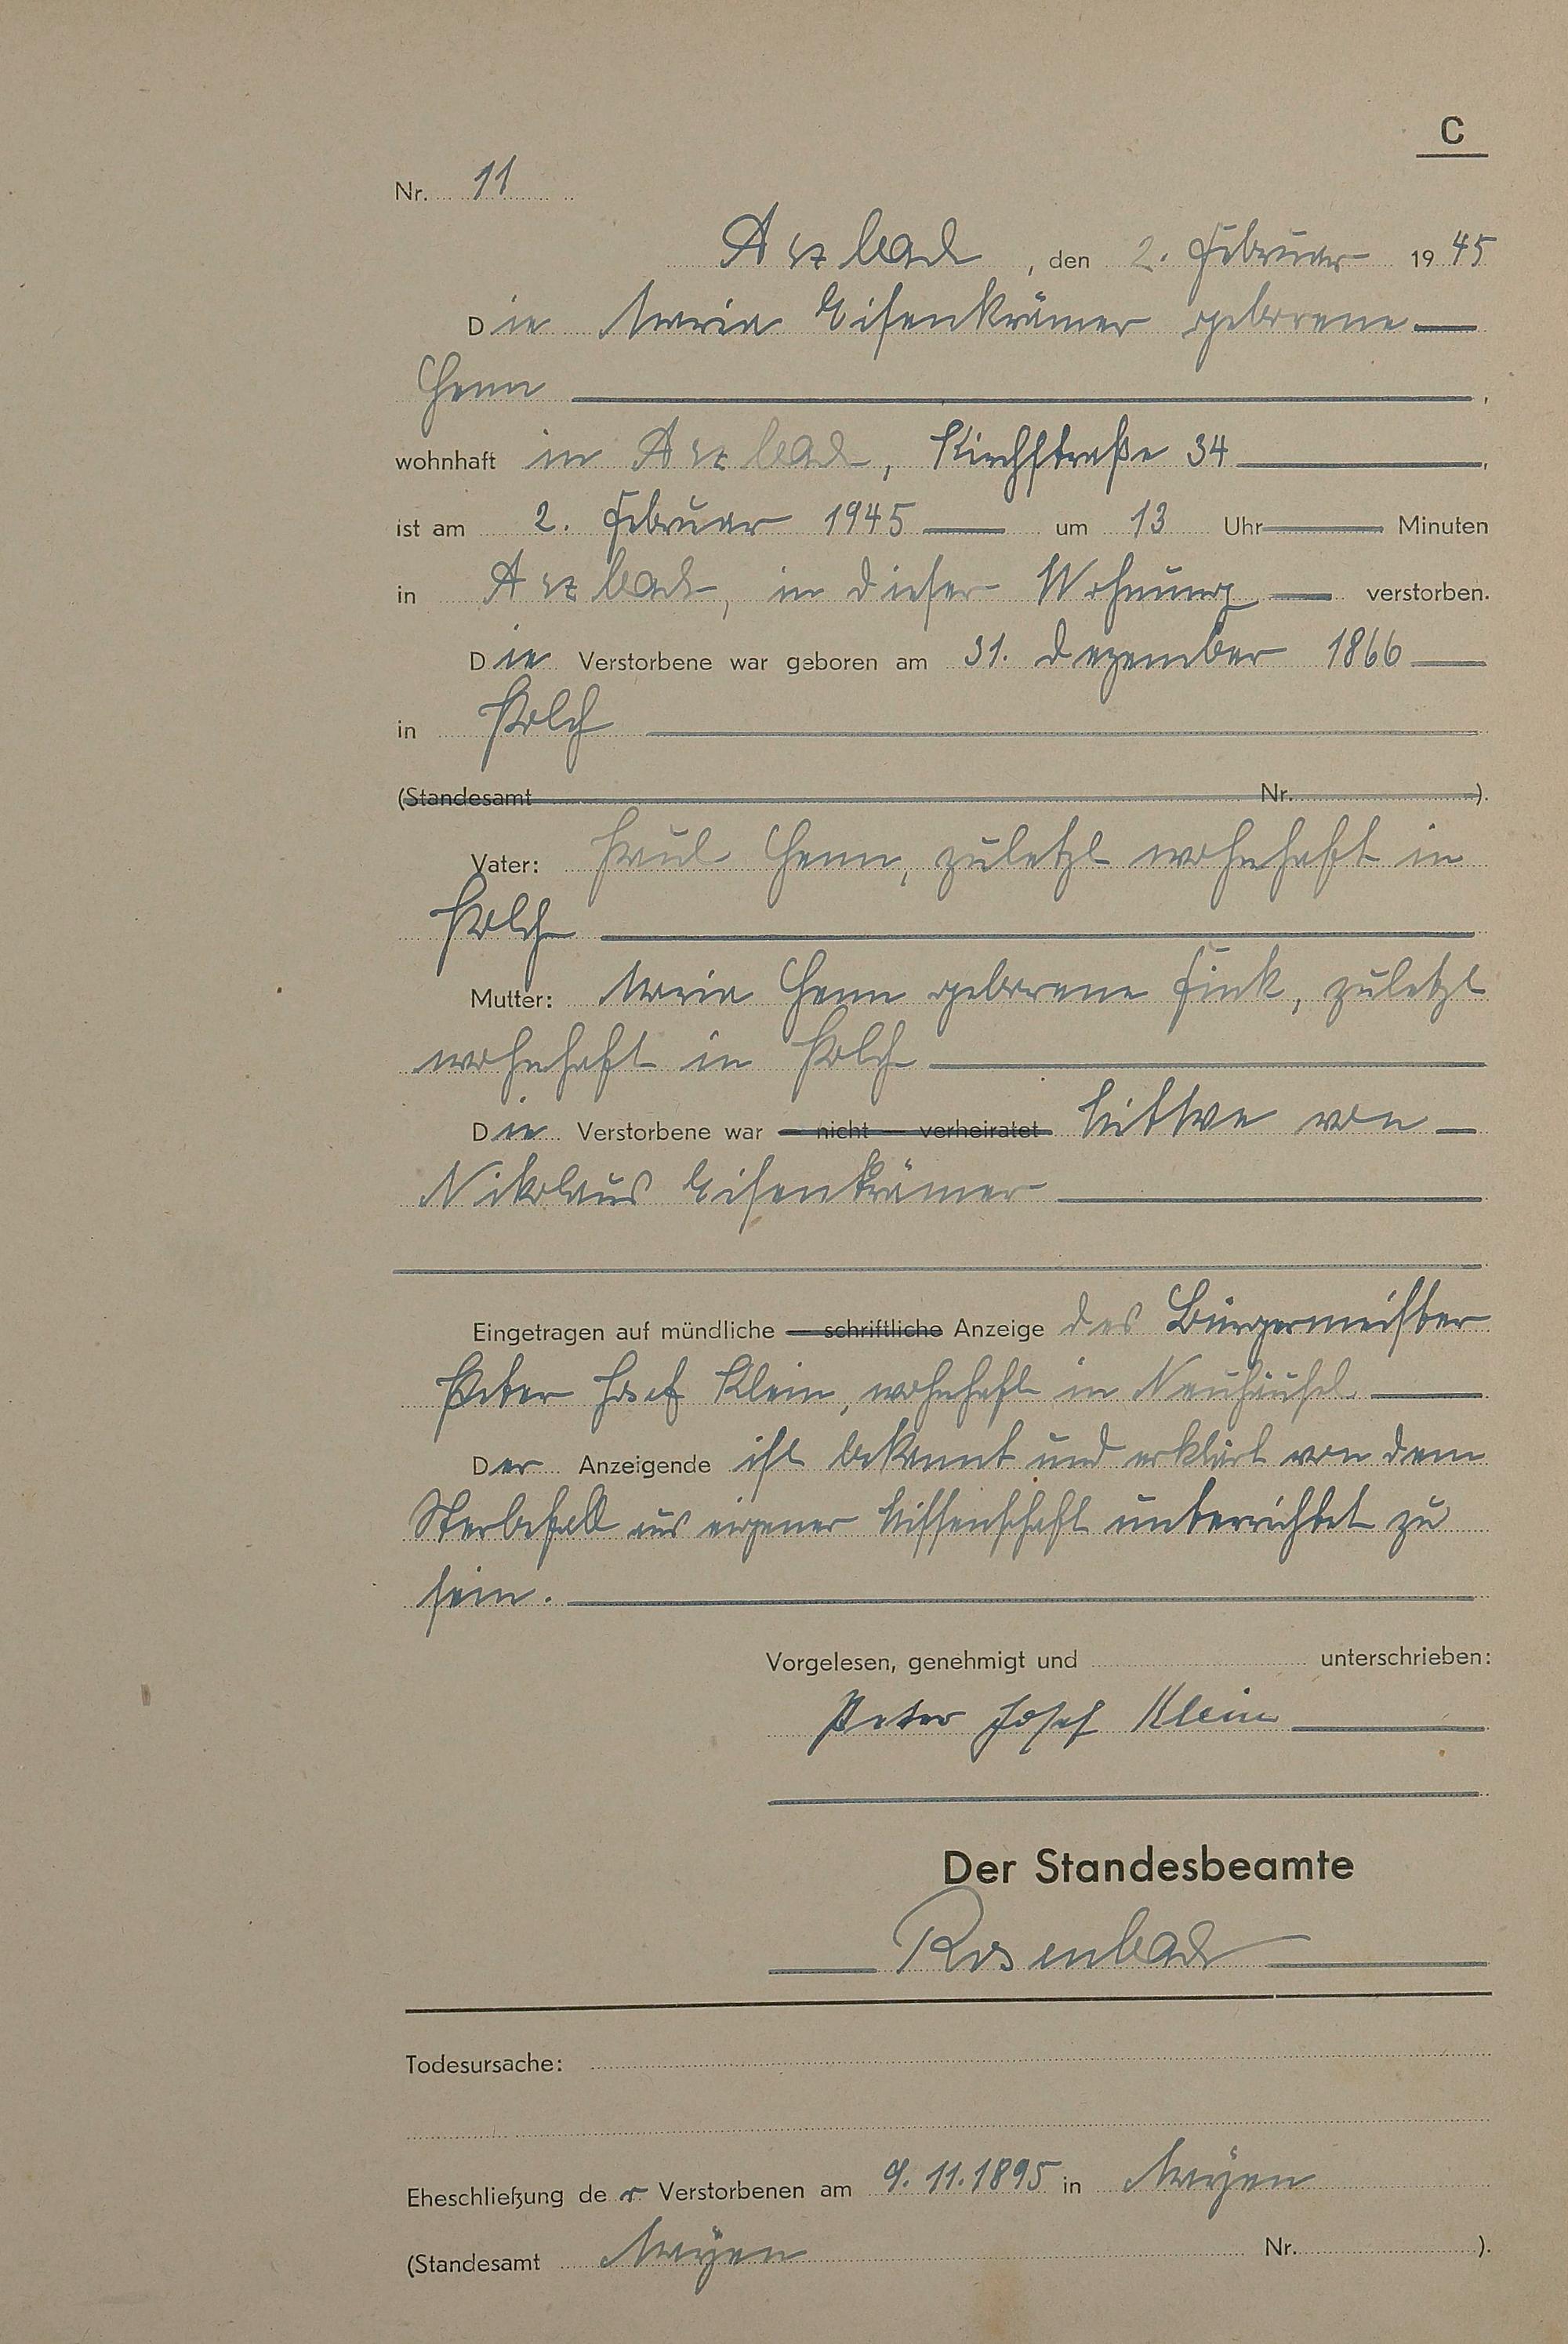 C
Nr. 11
Arzbach, den 2. Februar 1945
Die Maria Eisenkrämer geborene
Henn,
wohnhaft in Arzbach, Kirchstraße 34,
ist am 2. Februar 1945 um 13 Uhr Minuten
in Arzbach, in dieser Wohnung verstorben.
Die Verstorbene war geboren am 31. Dezember 1866
in Polch
(Standesamt Nr. ).
Vater: Paul Henn, zuletzt wohnhaft in
Polch
Mutter: Maria Henn geborene Fink, zuletzt
wohnhaft in Polch
Die Verstorbene war — nicht — verheiratet Witwe von
Nikolaus Eisenkrämer
Eingetragen auf mündliche — schriftliche Anzeige des Bürgermeister
Peter Josef Klein, wohnhaft in Neuhäusel
Der Anzeigende ist bekannt und erklärt von dem
Sterbefall aus eigener Wissenschaft unterrichtet zu
sein.
Vorgelesen, genehmigt und unterschrieben:
Peter Josef Klein
Der Standesbeamte
Rosenbach
Todesursache:
Eheschließung der Verstorbenen am 9.11.1895 in Mayen
(Standesamt Mayen Nr. ).